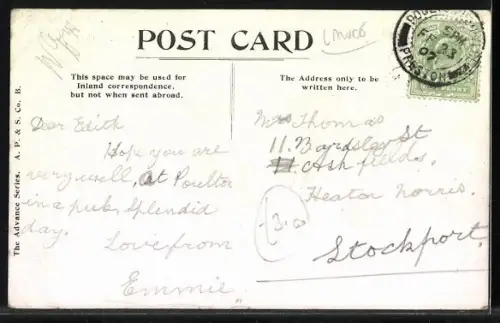 POST CARD
This space may be used for
Inland correspondence,
but not when sent abroad.
The Address only to be
written here.
The Advance Series. A. P. & S. Co. B.
Dear Edith
Hope you are
very well, at Poulton
in a pub, splendid
day.
Love from
Emmie
Mrs Thomas
11. Bardsley St
Ashfields,
Heaton Norris.
Stockport.
3.00
PRESTON
SP
23
07